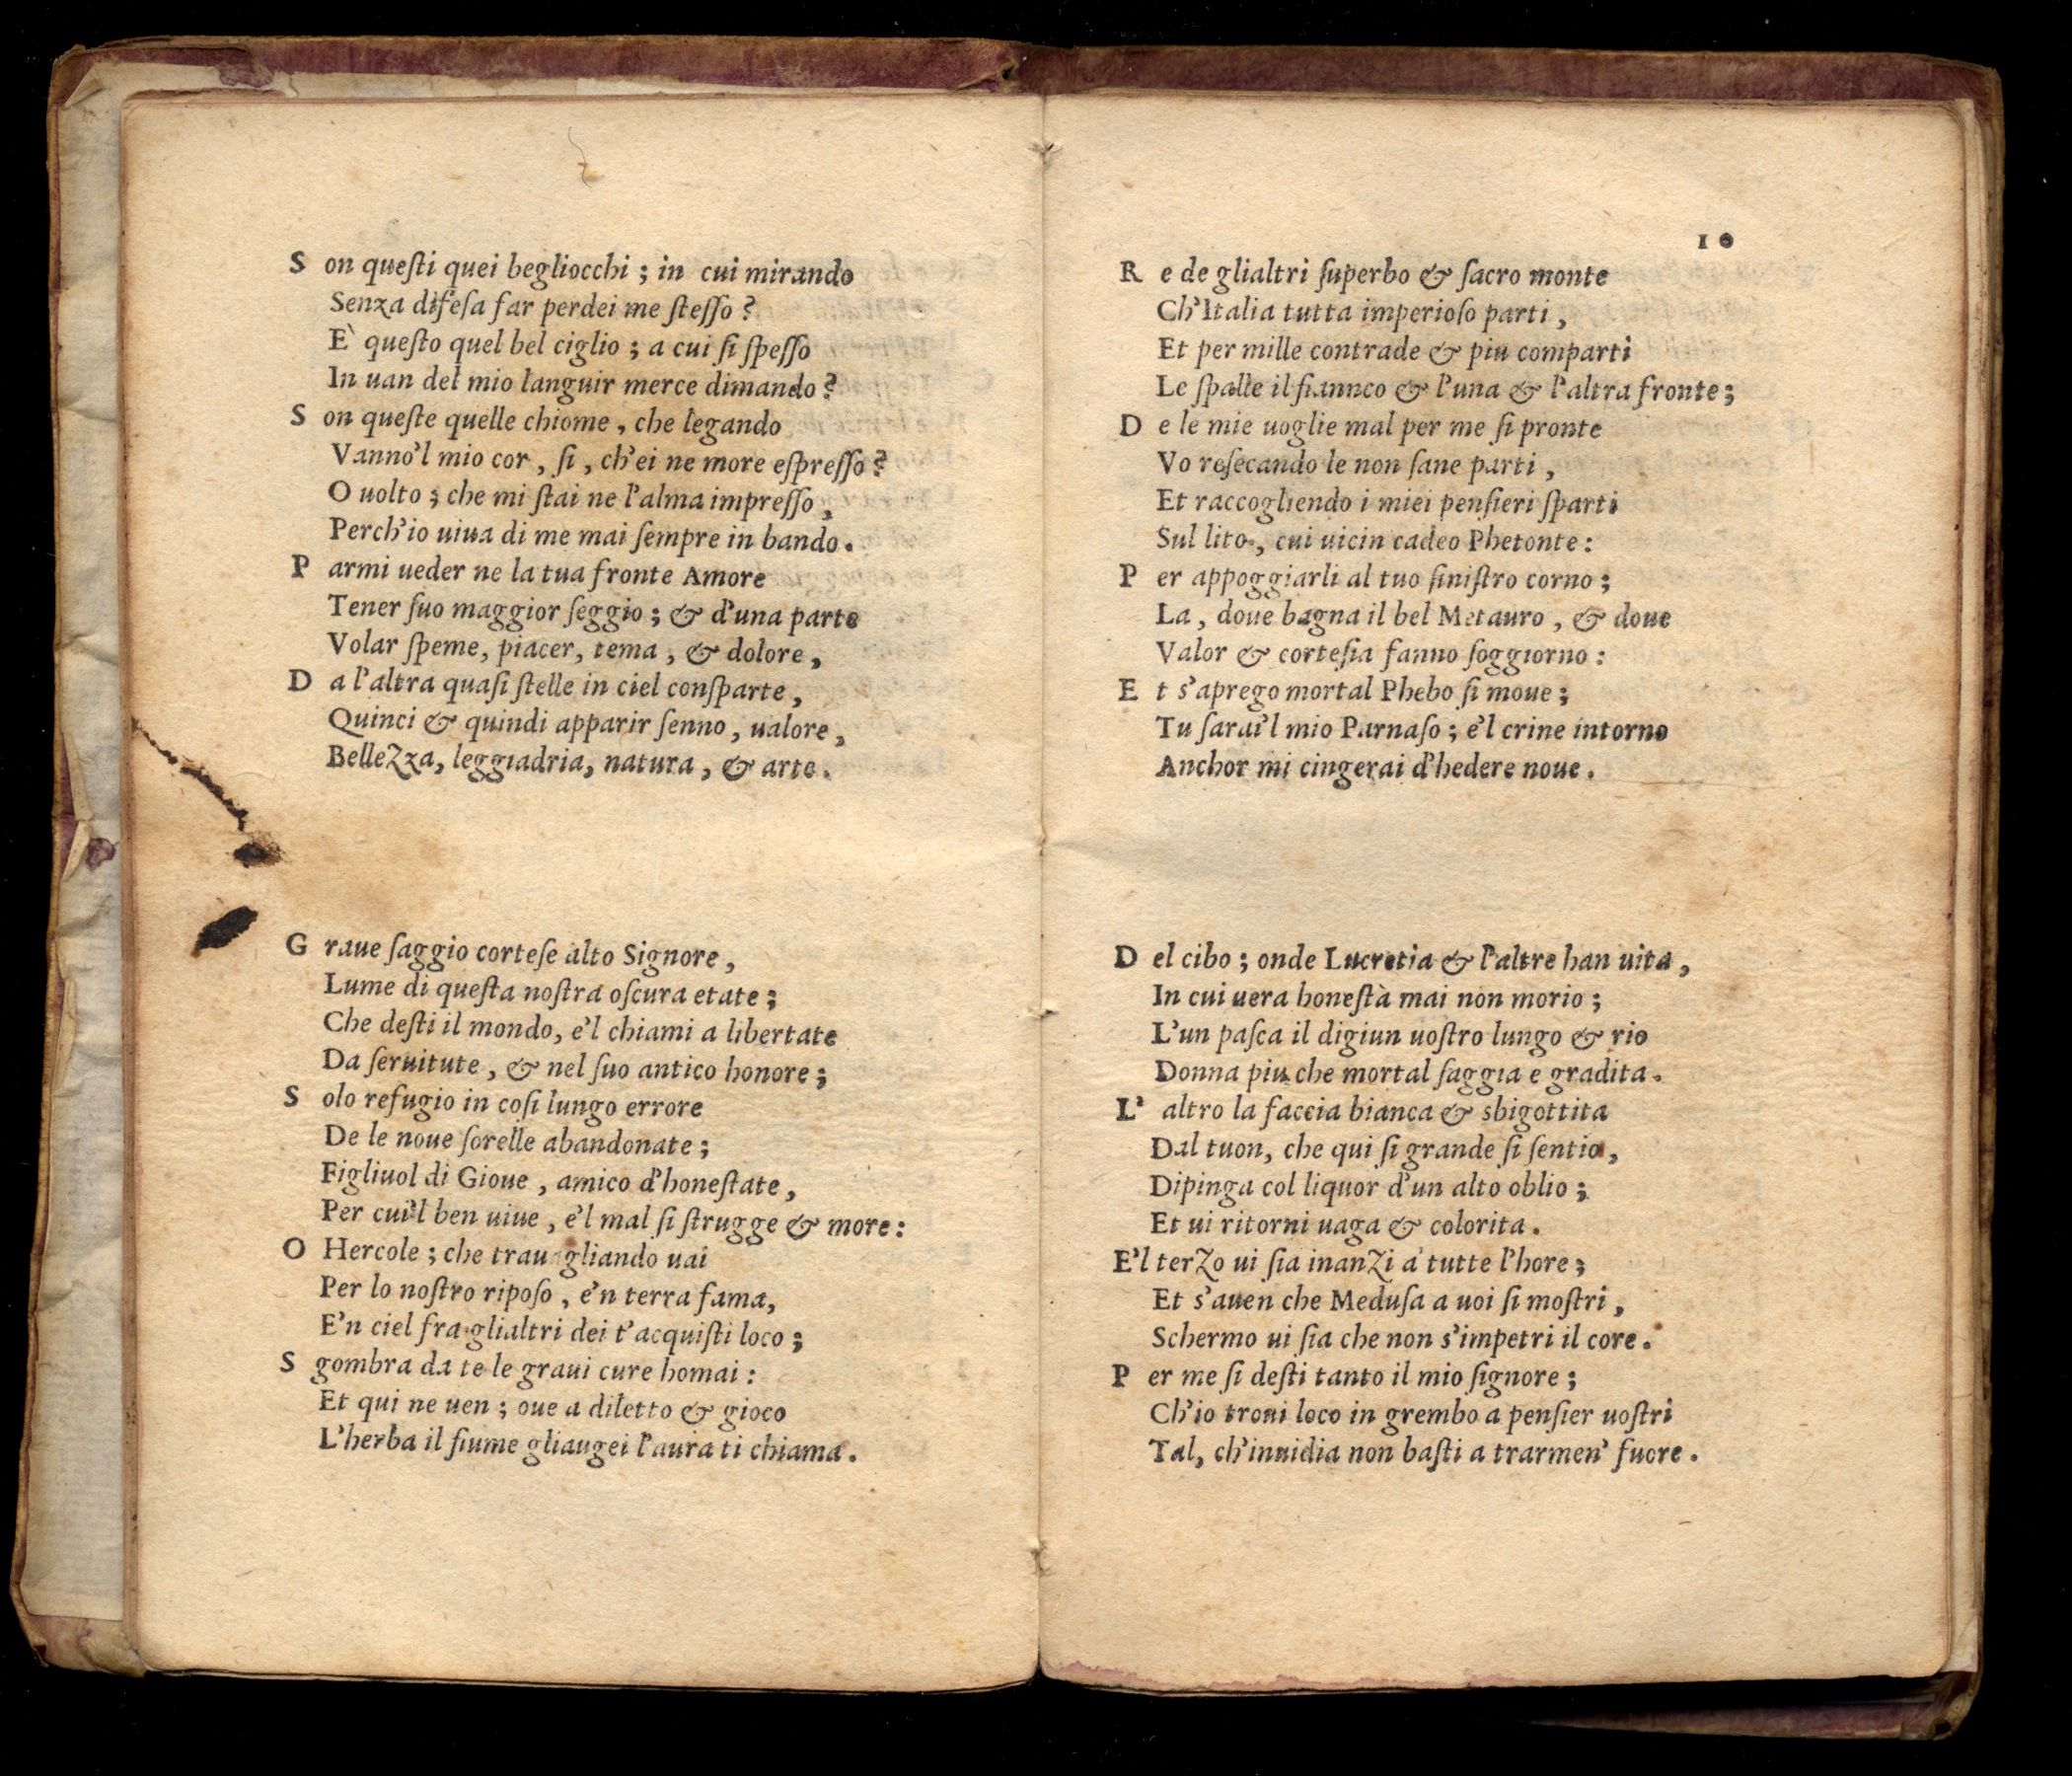 S on queſti quei begliocchi ; in cui mirando
Senza difeſa far perdei me ſteſſo ?
È queſto quel bel ciglio ; a cui ſi ſpeſſo
In uan del mio languir merce dimando ?
S on queſte quelle chiome , che legando
Vanno'l mio cor , ſi , ch'ei ne more eſpreſſo ?
O uolto ; che mi ſtai ne l'alma impreſſo ,
Perch'io uiua di me mai ſempre in bando .
P armi ueder ne la tua fronte Amore
Tener ſuo maggior ſeggio ; & d'una parte
Volar ſpeme, piacer, tema , & dolore ,
D a l'altra quaſi ſtelle in ciel conſparte ,
Quinci & quindi apparir ſenno , ualore ,
BelleZza, leggiadria, natura , & arte .
G raue ſaggio corteſe alto Signore ,
Lume di queſta noſtra oſcura etate ;
Che deſti il mondo, e'l chiami a libertate
Da ſeruitute , & nel ſuo antico honore ;
S olo refugio in coſi lungo errore
De le noue ſorelle abandonate ;
Figliuol di Gioue , amico d'honeſtate ,
Per cui'l ben uiue , e'l mal ſi ſtrugge & more :
O Hercole ; che trauagliando uai
Per lo noſtro ripoſo , e'n terra fama,
E'n ciel fra glialtri dei t'acquiſti loco ;
S gombra da te le graui cure homai :
Et qui ne uen ; oue a diletto & gioco
L'herba il fiume gliaugei l'aura ti chiama .
10
R e de glialtri ſuperbo & ſacro monte
Ch'Italia tutta imperioſo parti ,
Et per mille contrade & piu comparti
Le ſpalle il fiannco & l'una & l'altra fronte ;
D e le mie uoglie mal per me ſi pronte
Vo reſecando le non ſane parti ,
Et raccogliendo i miei penſieri ſparti
Sul lito , cui uicin cadeo Phetonte :
P er appoggiarli al tuo ſiniſtro corno ;
La , doue bagna il bel Metauro , & doue
Valor & corteſia fanno ſoggiorno :
E t s'a prego mortal Phebo ſi moue ;
Tu ſarai'l mio Parnaſo ; e'l crine intorno
Anchor mi cingerai d'hedere noue .
D el cibo ; onde Lucretia & l'altre han uita ,
In cui uera honeſtà mai non morio ;
L'un paſca il digiun uoſtro lungo & rio
Donna piu che mortal ſaggia e gradita .
L' altro la faccia bianca & sbigottita
Dal tuon, che qui ſi grande ſi ſentio ,
Dipinga col liquor d'un alto oblio ;
Et ui ritorni uaga & colorita .
E'l terZo ui ſia inanZi a tutte l'hore ;
Et s'auen che Meduſa a uoi ſi moſtri ,
Schermo ui ſia che non s'impetri il core .
P er me ſi deſti tanto il mio ſignore ;
Ch'io troui loco in grembo a penſier uoſtri
Tal, ch'inuidia non baſti a trarmen' fuore .